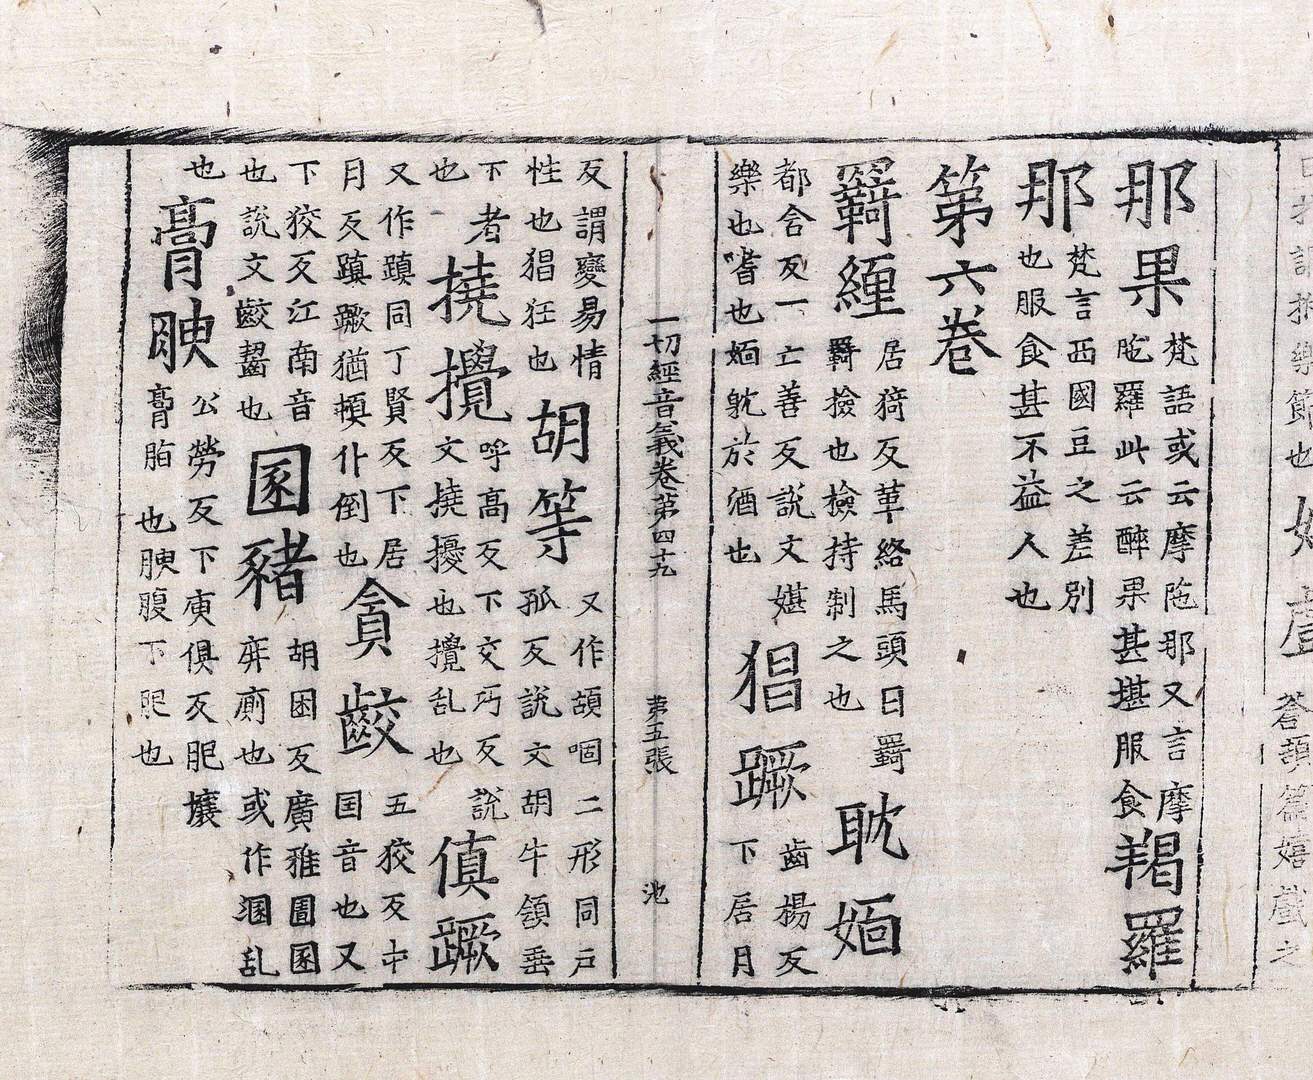 蒼頡篇嬉戲之
那果
梵語或云摩陁那又言摩
陁羅此云醉果甚堪服食
羯羅
那
梵言西國豆之差別
也服食甚不益人也
第六卷
羇緾
居猗反革絡馬頭曰羇
羇撿也檢持制之也
耽媔
都含反一亡善反說文媅
樂也嗜也媔躭於酒也
猖蹶
齒楊反
下居月
一切經音義卷第四十九 第五張 池
反謂變易情
性也猖狂也
胡等
又作頡㖽二形同戶
孤反說文胡牛頷垂
下者
也
撓攪
呼高反下交巧反說
文撓擾也攪乱也
傎蹶
又作蹎同丁賢反下居
月反蹎蹶猶頓仆倒也
貪齩
五狡反中
国音也又
下狡反江南音
也說文齩齧也
圂豬
胡困反廣雅圊圂
屏廁也或作溷乱
也
膏腴
公勞反下庾俱反肥壤
膏脂也腴腹下肥也